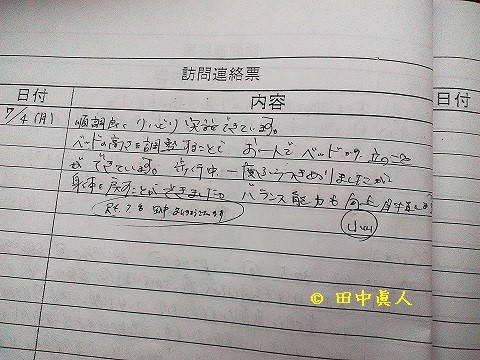 訪問連絡票
日付
内容
日付
7/4(月)
順調にリハビリ実施できています。
ベッドの高さを調整することで お一人で ベッドから 立つこと
ができています。歩行中、一度ふらつきありましたが
身体を戻すことができました。バランス能力も向上
R4.7.8 田中
© 田中眞人